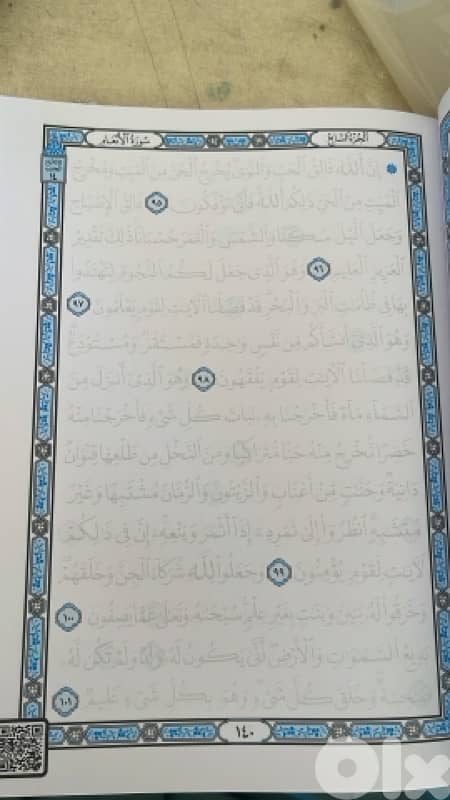 سورة الأنعام
الجزء السابع
إِنَّ اللَّهَ فَالِقُ الْحَبِّ وَالنَّوَىٰ يُخْرِجُ الْحَيَّ مِنَ الْمَيِّتِ وَمُخْرِجُ
الْمَيِّتِ مِنَ الْحَيِّ ذَٰلِكُمُ اللَّهُ فَأَنَّىٰ تُؤْفَكُونَ ٩٥ فَالِقُ الْإِصْبَاحِ
وَجَعَلَ اللَّيْلَ سَكَنًا وَالشَّمْسَ وَالْقَمَرَ حُسْبَانًا ذَٰلِكَ تَقْدِيرُ
الْعَزِيزِ الْعَلِيمِ ٩٦ وَهُوَ الَّذِي جَعَلَ لَكُمُ النُّجُومَ لِتَهْتَدُوا
بِهَا فِي ظُلُمَاتِ الْبَرِّ وَالْبَحْرِ قَدْ فَصَّلْنَا الْآيَاتِ لِقَوْمٍ يَعْلَمُونَ ٩٧
وَهُوَ الَّذِي أَنْشَأَكُمْ مِنْ نَفْسٍ وَاحِدَةٍ فَمُسْتَقَرٌّ وَمُسْتَوْدَعٌ
قَدْ فَصَّلْنَا الْآيَاتِ لِقَوْمٍ يَفْقَهُونَ ٩٨ وَهُوَ الَّذِي أَنْزَلَ مِنَ
السَّمَاءِ مَاءً فَأَخْرَجْنَا بِهِ نَبَاتَ كُلِّ شَيْءٍ فَأَخْرَجْنَا مِنْهُ
خَضِرًا نُخْرِجُ مِنْهُ حَبًّا مُتَرَاكِبًا وَمِنَ النَّخْلِ مِنْ طَلْعِهَا قِنْوَانٌ
دَانِيَةٌ وَجَنَّاتٍ مِنْ أَعْنَابٍ وَالزَّيْتُونَ وَالرُّمَّانَ مُشْتَبِهًا وَغَيْرَ
مُتَشَابِهٍ انْظُرُوا إِلَىٰ ثَمَرِهِ إِذَا أَثْمَرَ وَيَنْعِهِ إِنَّ فِي ذَٰلِكُمْ
لَآيَاتٍ لِقَوْمٍ يُؤْمِنُونَ ٩٩ وَجَعَلُوا لِلَّهِ شُرَكَاءَ الْجِنَّ وَخَلَقَهُمْ
وَخَرَقُوا لَهُ بَنِينَ وَبَنَاتٍ بِغَيْرِ عِلْمٍ سُبْحَانَهُ وَتَعَالَىٰ عَمَّا يَصِفُونَ ١٠٠
بَدِيعُ السَّمَاوَاتِ وَالْأَرْضِ أَنَّىٰ يَكُونُ لَهُ وَلَدٌ وَلَمْ تَكُنْ لَهُ
صَاحِبَةٌ وَخَلَقَ كُلَّ شَيْءٍ وَهُوَ بِكُلِّ شَيْءٍ عَلِيمٌ ١٠١
١٤٠
olx